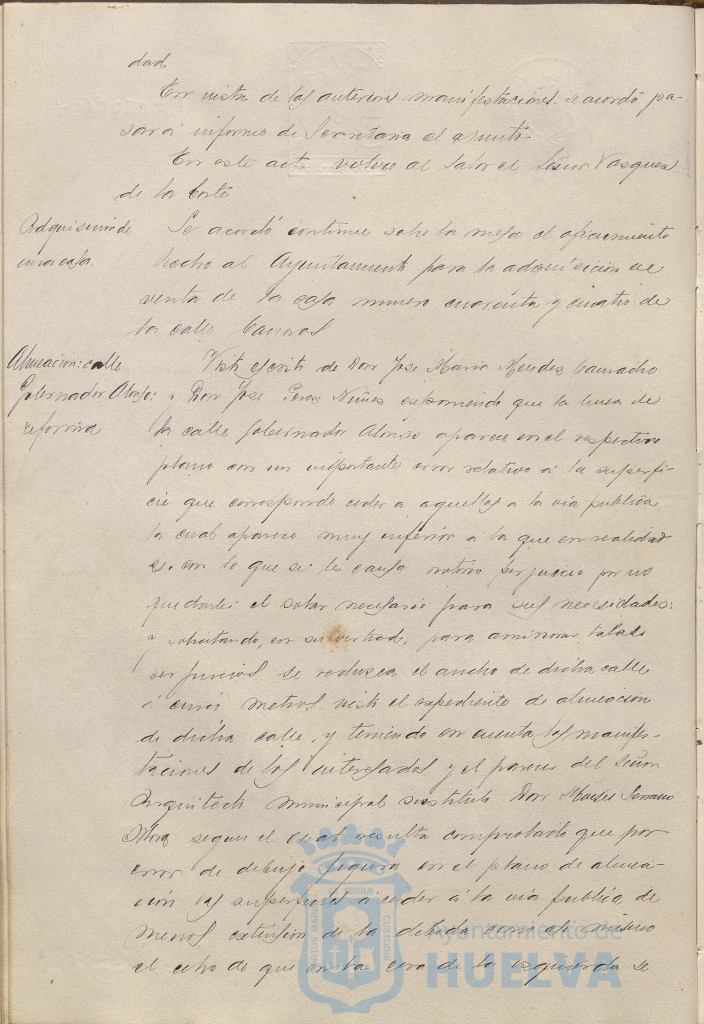 dad.
En vista de las anteriores manifestaciones se acordó pa-
sar á informe de Secretaria el asunto.
En este acto volvió al Salon el Señor Vazquez
de la Corte
Adquisición de
una casa.
Se acordó continue sobre la mesa el ofrecimiento
hecho al Ayuntamiento para la adquisición en
venta de la casa numero cuarenta y cuatro de
la calle
Alineacion: calle
Gobernador Alonso:
reforma
Visto escrito de Don Jose Maria Mendez Camacho
y Don Jose Perez Nuñez exponiendo que la linea de
la calle Gobernador Alonso aparece en el respectivo
plano con un importante error relativo á la superfi-
cie que corresponde ceder a aquellos a la via publica
la cual aparece muy inferior a la que en realidad
es, con lo que se les causa notorio perjuicio por no
quedarles el solar necesario para sus necesidades:
y solicitando, en su virtud, para aminorar tales
perjuicios se reduzca el ancho de dicha calle
á cinco metros. visto el expediente de alineacion
de dicha calle, y teniendo en cuenta las manifes-
taciones de los interesados y el parecer del Señor
Arquitecto municipal sustituto Don Moisés Serrano
Mora segun el cual resulta comprobado que por
error de dibujo figura en el plano de alinea-
ción las superficies a ceder á la via publica, de
menos extension de la debida como asi mismo
el echo de que en la cera de la izquierda se
PORTUS MARIS ET TERRAE CUSTODIA
Ayuntamiento de
HUELVA